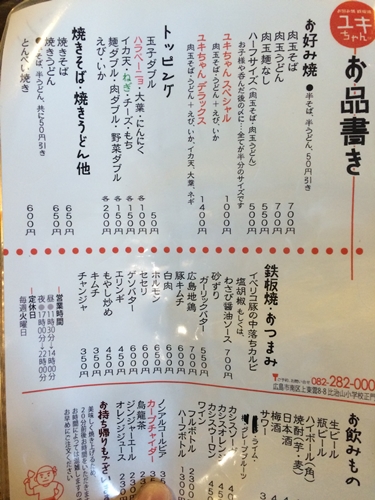 ユキちゃん
お品書き
お好み焼 ●半そば、半うどん、50円引き
肉玉そば 700円
肉玉うどん 700円
肉玉麺なし 550円
ハーフサイズ(肉玉そば・肉玉うどん) 500円
お子様や呑んだ後の〆に…全てが半分のサイズです
ユキちゃんスペシャル 1000円
肉玉そば・うどん+えび、いか
ユキちゃんデラックス 1400円
肉玉そば・うどん+えび、いか、イカ天、大葉、ネギ
トッピング
玉子ダブル 50円
ハラペーニョ・大葉・にんにく 各100円
イカ天・ねぎ・チーズ・もち 各150円
麺ダブル・肉ダブル・野菜ダブル 各150円
えび・いか 各200円
焼きそば・焼きうどん他
焼きそば 650円
焼きうどん 650円
●半そば、半うどん、共に50円引き
とんぺい焼き 600円
鉄板焼・おつまみ
イベリコ豚の中落ちカルビ
塩胡椒 もしくは、
わさび醤油ソース 700円
ガーリックバター 550円
砂ずり
広島地鶏 700円
豚キムチ
白肉
ホルモン
セセリ
ゲソバター
エリンギ
もやし炒め
キムチ 350円
チャンジャ 350円
営業時間
昼●11時30分→14時00分
夜●17時00分→22時00分
定休日
毎週火曜日
082-282-000
広島市南区上東雲8-8 比治山小学校正門
お飲みもの
生ビール
瓶ビール
ハイボール(角)
焼酎(芋・麦)
日本酒
梅酒
サワー
ライム
グレープフルーツ
カシスソーダ
カシスオレンジ
カシス
ワイン
フルボトル
ハーフボトル
ノンアルコールビール
カープチャイダー
烏龍茶
ジンジャーエール
オレンジジュース
お持ち帰りもござい